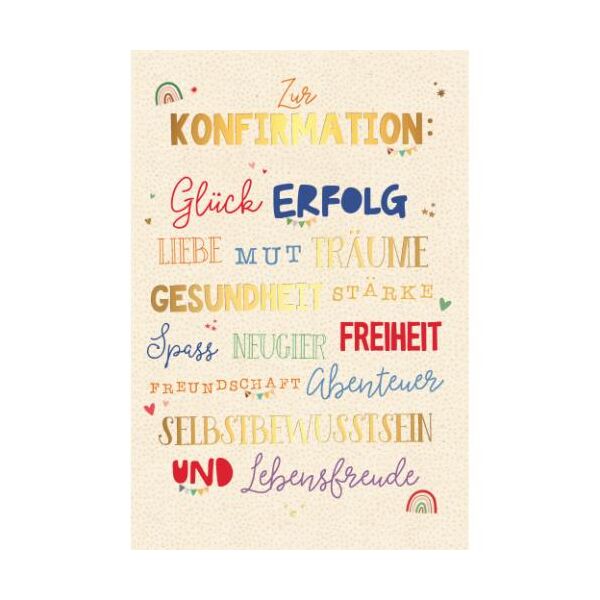 Zur
KONFIRMATION:
Glück ERFOLG
LIEBE MUT TRÄUME
GESUNDHEIT STÄRKE
Spass NEUGIER FREIHEIT
FREUNDSCHAFT Abenteuer
SELBSTBEWUSSTSEIN
UND Lebensfreude